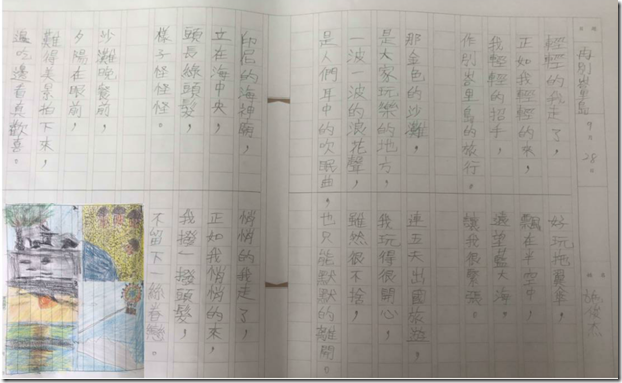 再別峇里島 9。28。
輕輕的我走了，
正如我輕輕的來，
我輕輕的招手，
作別峇里島的旅行。
那金色的沙灘，
是大家玩樂的地方，
一波一波的浪花聲，
是人們耳中的吹眠曲，
印尼的海神廟，
立在海中央，
頭長綠頭髮，
樣子怪怪怪。
沙灘晚餐前，
夕陽在眼前，
難得美景拍下來，
邊吃邊看真歡喜。
好玩拖曳傘，
飄在半空中，
遠望藍大海，
讓我很緊張。
連五天出國旅遊，
我玩得很開心，
雖然很不捨，
也只能默默的離開。
悄悄的我走了，
正如我悄悄的來，
我撥一撥頭髮，
不留下一絲眷戀。